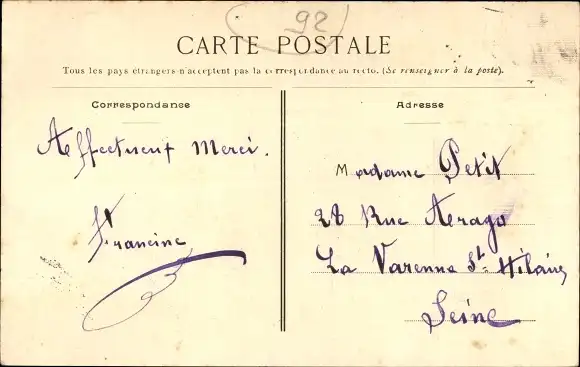 92
CARTE POSTALE
Tous les pays étrangers n'acceptent pas la correspondance au recto. (Se renseigner à la poste).
Correspondance
Affectueux Merci.
Francine
Adresse
Madame Petit
28 Rue Arago
La Varenne St Hilaire
Seine